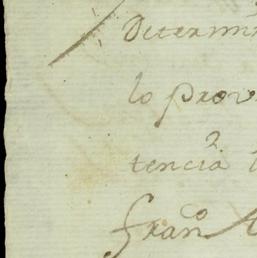 Determi
lo prov
tencia
fran.º